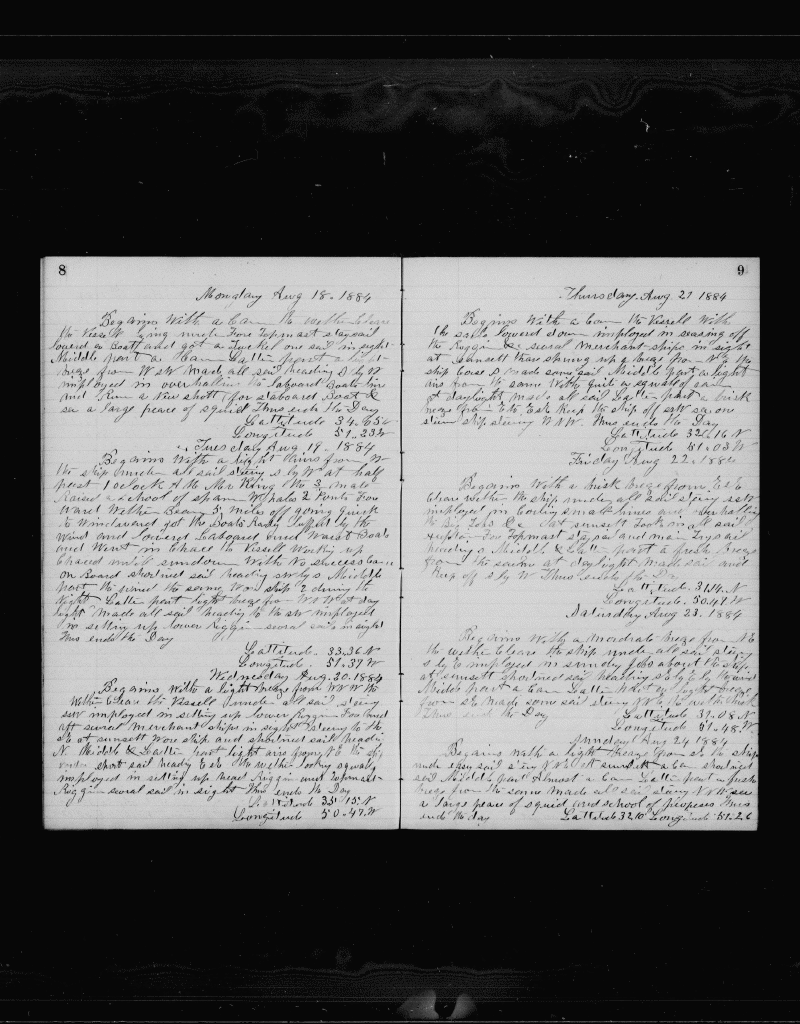 8
Monday Aug 18. 1884
Begains With a Cam the wether Cleare
the Vessell lying under Fore Topmast staysail
lowerd a Boatt and got a Turkel one sail in sight
Middle part a Cam Latter part a light
breze from W SW made all sail heading S by W
imployed in overhalling the labourd Boats line
and Run a New shott for starboard Boat &
saw a large peace of squid Thus ends the Day
Lattitude 34.65
Longitude 51.23 W
Tuesday Aug 19. 1884
Begains With a light Airs from W
the ship under all sail stering S by W at half
past 1 oclock A the Mr King the 3 mate
Raised a school of sparm Whales 2 Points Fore
Ward Wether Beam 5 miles off going quick
to Windward got the Boats Ready luffed by the
Wind and lowered Labourd and Waist Boats
and Went in Chace the Vissell Working up
Chaced untill sundown With No success Came
on Board shortned sail heading S by Middle
part the wind the same Wore ship 2 during the
Night Latter part light breze from W at day
light Made all sail heading to the sw imployed
in setting up lower Riggin sevral sails in sight
Thus ends the Day
Lattitude. 33.36 N
Longitude. 51.37 W
Wednesday Aug. 20. 1884
Begains With a light breze from the
Wether Cleare the Vissell under all sail stering
ssw imployed in setting up lower Riggin Fore and
aft sevral merchant ships in sight stering to the
at sunsett Wore ship and shortned sail heading
N. Middle & Latter part light airs from NE the ship
under short sail heading E the wether looking squaly
imployed in setting up head Riggin and Topmast
Riggin sevral sail in sight Thus ends the Day
Lattitude 33.15 N
Longitude 50.47. W
9
Thursday. Aug. 21 1884
Begains With a Cam the Vissell With
the sails lowered down imployed in seasing off
the Riggin & sevral merchant ships in sight
at sunsett thare sprung up a breze from
ship made some sail Middle part a light
airs from the same With quit a squaly of rain
at daylight made all sail Latter part a brisk
breze from E Keep the ship off SSW saw one
stem ship stering W.N.W. Thus ends the Day
Lattitude 32.16 N
Longitude 51.03 W
Friday Aug 22. 1884
Begains With a brisk breze from E
Cleare wether the ship under all sail stering SSW
imployed in Coiling small lines and overhalling
the Big Tobs & at sunsett Took in all sail
Fore Topmast staysail and main Trysail
heading S Middle & Latter part a fresh Breze
from the same at daylight made sail and
Keep off S by W Thus ends the Day
Lattitude. 31.14. N
Longitude. 50.47 W
Saturday Aug 23. 1884
Begains With a modrate breze from NE
the wether Cleare the ship under all sail stering
S by E imployed in sundry Jobs about the ship
at sunsett shortned sail heading by the wind
Middle part a Cam Latter part a light breze
from made some sail stering the wether thick
Thus ends the Day Lattitude 32.08 N
Longitude. 51.48. W
Sunday Aug 24 1884
Begains With a light breze from the ship
under easy sail stering at sunsett a Cam shortned
sail Middle part Almost a Cam Latter part a fresh
breze from the same made all sail stering NNW saw
a large peace of squid and school of porpoeses Thus
ends the day Lattitude 32.10 Longitude 51.26